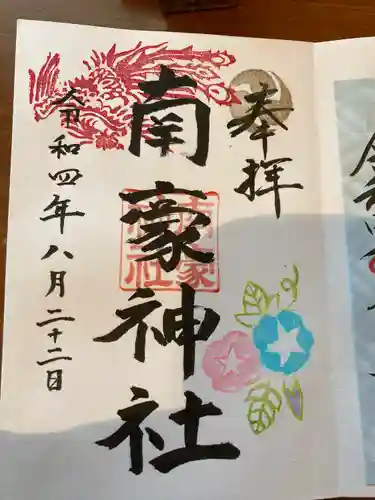 奉拝
南豪神社
令和四年八月二十二日